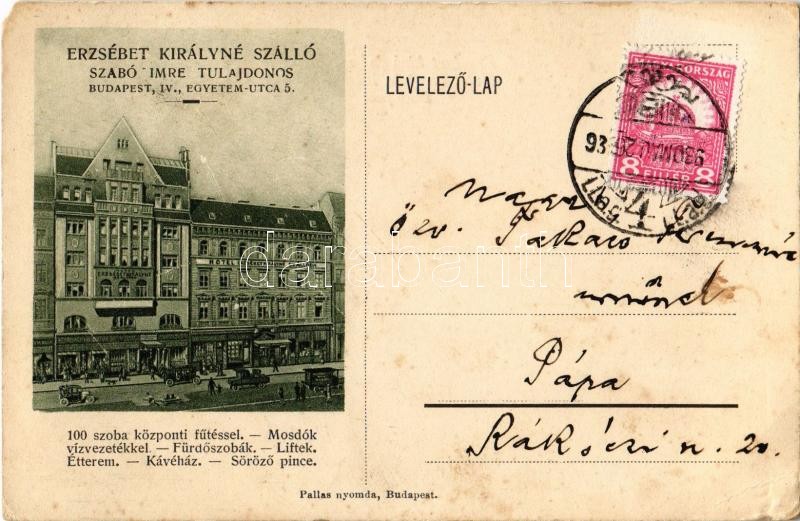 ERZSÉBET KIRÁLYNÉ SZÁLLÓ
SZABÓ IMRE TULAJDONOS
BUDAPEST, IV., EGYETEM-UTCA 5.
HOTEL
100 szoba központi fűtéssel. — Mosdók
vízvezetékkel. — Fürdőszobák. — Liftek.
Étterem. — Kávéház. — Söröző pince.
LEVELEZŐ-LAP
MAGYARORSZÁG
8 FILLÉR 8
Özv. Takács
Pápa
Rákóczi u. 20.
Pallas nyomda, Budapest.
darabanth